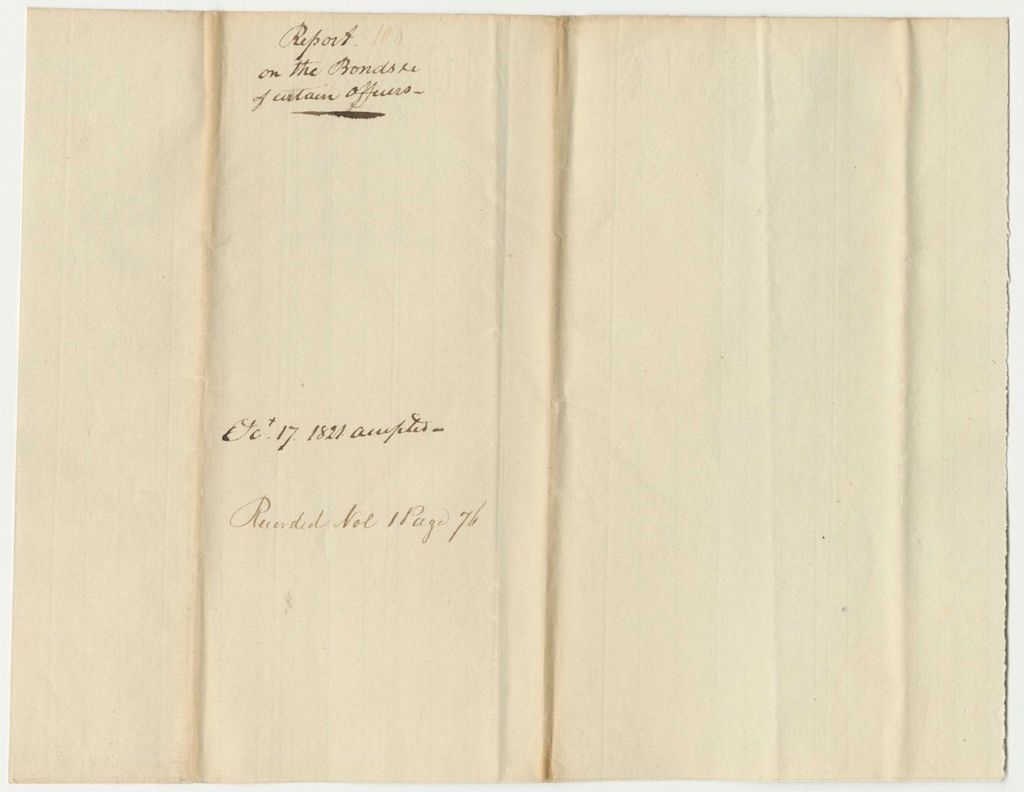 Report. 108
on the Bonds &c
of certain officers-
Oct. 17. 1821 accepted-
Recorded Vol 1 Page 76